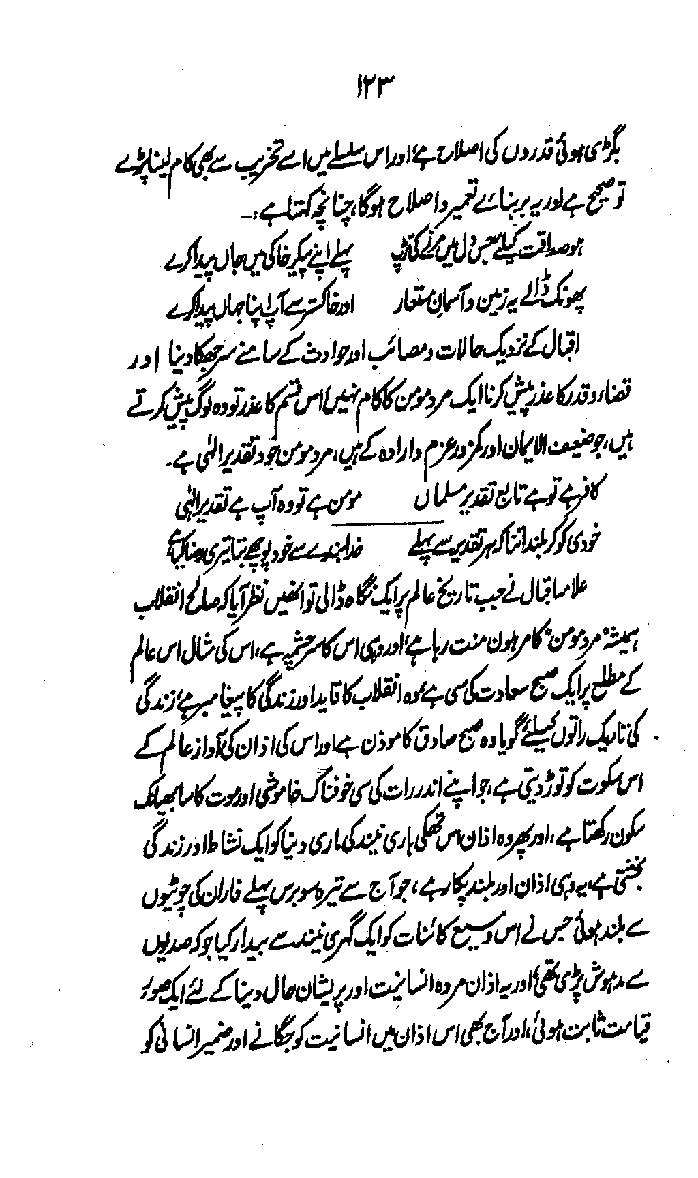 ۱۲۳
بگڑی ہوئی قدروں کی اصلاح ہے، اور اس سلسلے میں اسے تخریب سے بھی کام لینا پڑے
تو صحیح ہے اور یہ بربنائے تعمیر و اصلاح ہوگا، چنانچہ کہتا ہے:۔
ہو صداقت کیلئے جس دل میں مرنے کی تڑپ پہلے اپنے پیکر خاکی میں جاں پیدا کرے
پھونک ڈالے یہ زمین و آسمان مستعار اور خاکستر سے آپ اپنا جہاں پیدا کرے
اقبال کے نزدیک حالات و مصائب اور حوادث کے سامنے سر جھکا دینا اور
قضاء و قدر کا عذر پیش کرنا ایک مرد مومن کا کام نہیں، اس قسم کا عذر تو وہ لوگ پیش کرتے
ہیں، جو ضعیف الایمان اور کمزور عزم و ارادہ کے ہیں، مرد مومن خود تقدیر الٰہی ہے۔
کافر ہے تو ہے تابع تقدیر مسلماں مومن ہے تو وہ آپ ہے تقدیر الٰہی
خودی کو کر بلند اتنا کہ ہر تقدیر سے پہلے خدا بندے سے خود پوچھے بتا تیری رضا کیا ہے
علامہ اقبال نے جب تاریخ عالم پر ایک نگاہ ڈالی تو انھیں نظر آیا کہ صالح انقلاب
ہمیشہ "مرد مومن" کا مرہون منت رہا ہے، اور وہی اس کا سرچشمہ ہے، اس کی مثال اس عالم
کے مطلع پر ایک صبح سعادت کی سی ہے، وہ انقلاب کا قاید اور زندگی کا پیغامبر ہے، زندگی
کی تاریک راتوں کیلئے گویا وہ صبح صادق کا موذن ہے اور اس کی اذان کی آواز عالم کے
اس سکوت کو توڑ دیتی ہے، جو اپنے اندر رات کی سی خوفناک خاموشی اور موت کا سا بھیانک
سکون رکھتا ہے، اور پھر وہ اذان اس تھکی ہاری نیند کی ماری دنیا کو ایک نشاط اور زندگی
بخشتی ہے، یہ وہی اذان اور بلند پکار ہے، جو آج سے تیرہ سو برس پہلے فاران کی چوٹیوں
سے بلند ہوئی جس نے اس وسیع کائنات کو ایک گہری نیند سے بیدار کیا جو کہ صدیوں
سے مدہوش پڑی تھی، اور یہ اذان مردہ انسانیت اور پریشان حال دنیا کے لئے ایک صور
قیامت ثابت ہوئی، اور آج بھی اس اذان میں انسانیت کو جگانے اور ضمیر انسانی کو